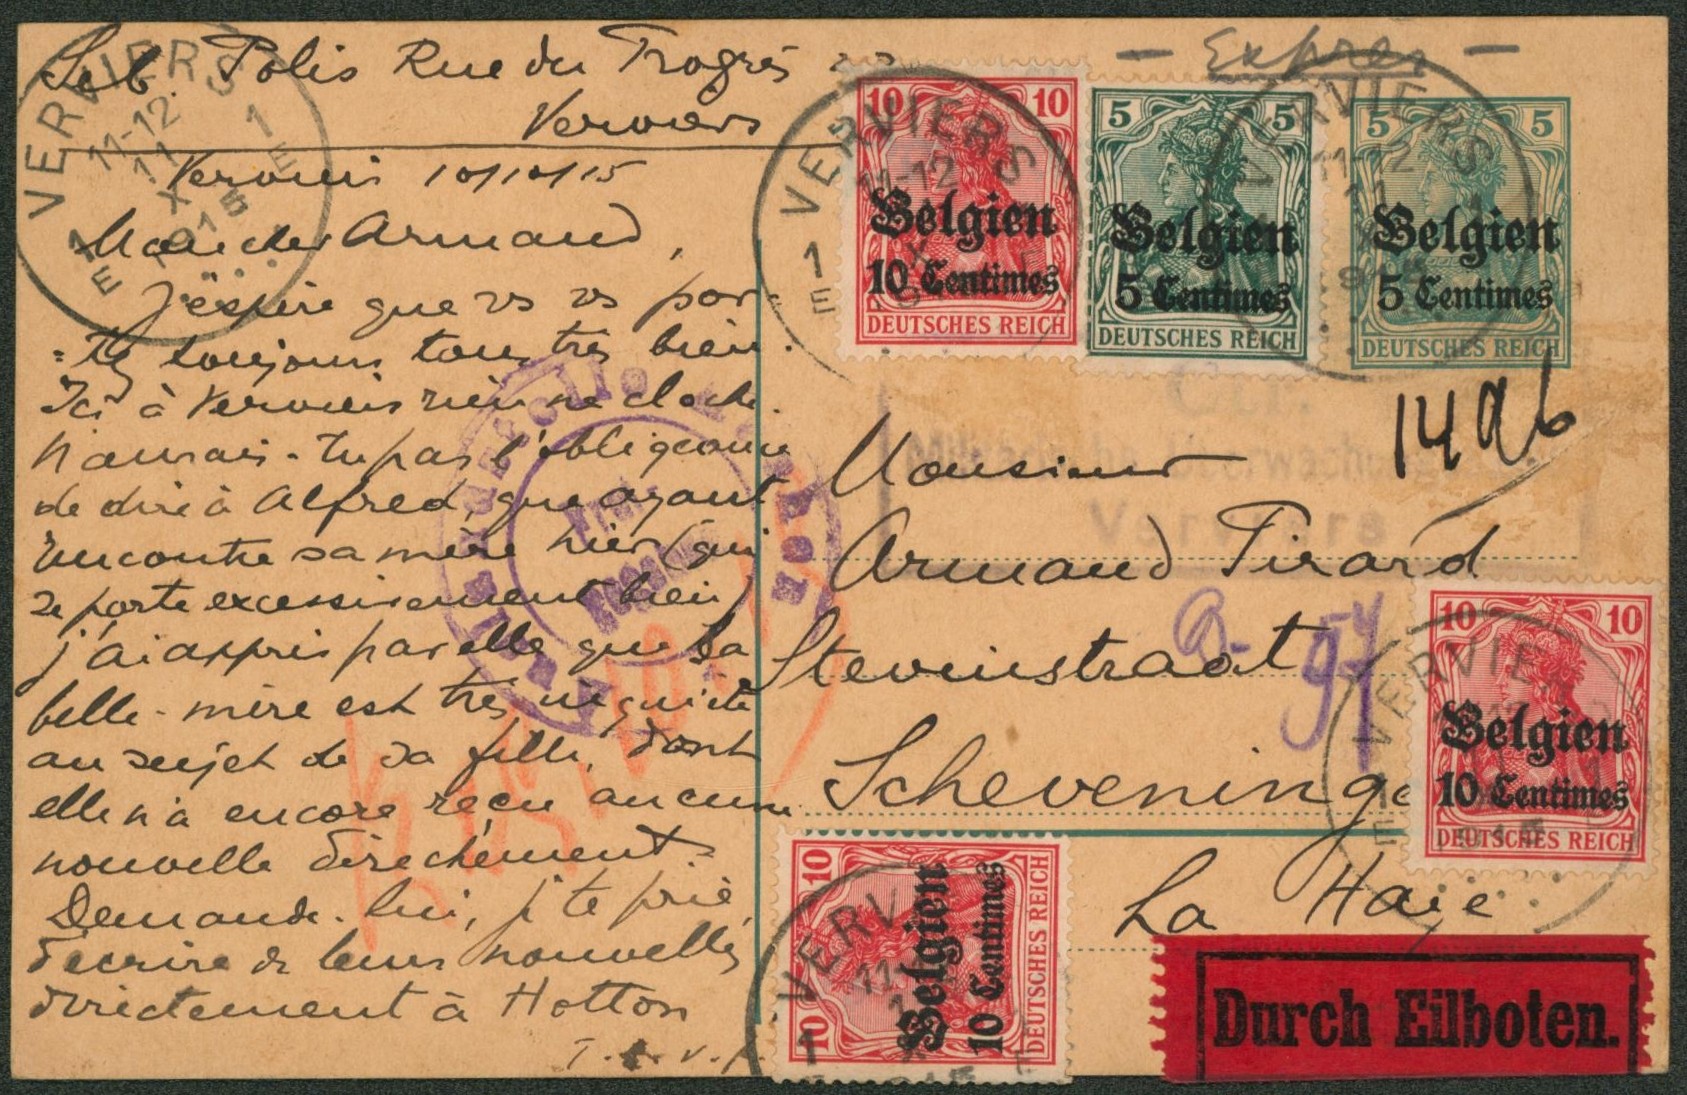 Seb. Polis Rue du Progrès 22
Verviers
Verviers 10/10/15
Mon cher Armand,
J'espère que vs vs por-
tez toujours tous très bien.
Ici à Verviers rien ne cloche.
N'aurais-tu pas l'obligeance
de dire à Alfred, que ayant
rencontré sa mère hier (qui
se porte excessivement bien)
j'ai appris par elle que sa
belle-mère est très inquiète
au sujet de sa fille, dont
elle n'a encore reçu aucune
nouvelle directement.
Demande-lui, j'te prie,
d'écrire de leurs nouvelles
directement à Hotton
T.S.V.P.
— Expres —
VERVIERS
11-12
11
X
1915
1 E
1 E
10 10
Belgien
10 Centimes
DEUTSCHES REICH
5 5
Belgien
5 Centimes
DEUTSCHES REICH
5 5
Belgien
5 Centimes
DEUTSCHES REICH
VERVIERS
11-12
VERVIERS
11-12
Militärische Überwachungs
Verviers
Monsieur
Armand Pirard
Stevinstraat
97
Scheveninge
La Haye
10 10
Belgien
10 Centimes
DEUTSCHES REICH
VERVIE
10 10
Belgien
10 Centimes
DEUTSCHES REICH
VERV
Durch Eilboten.